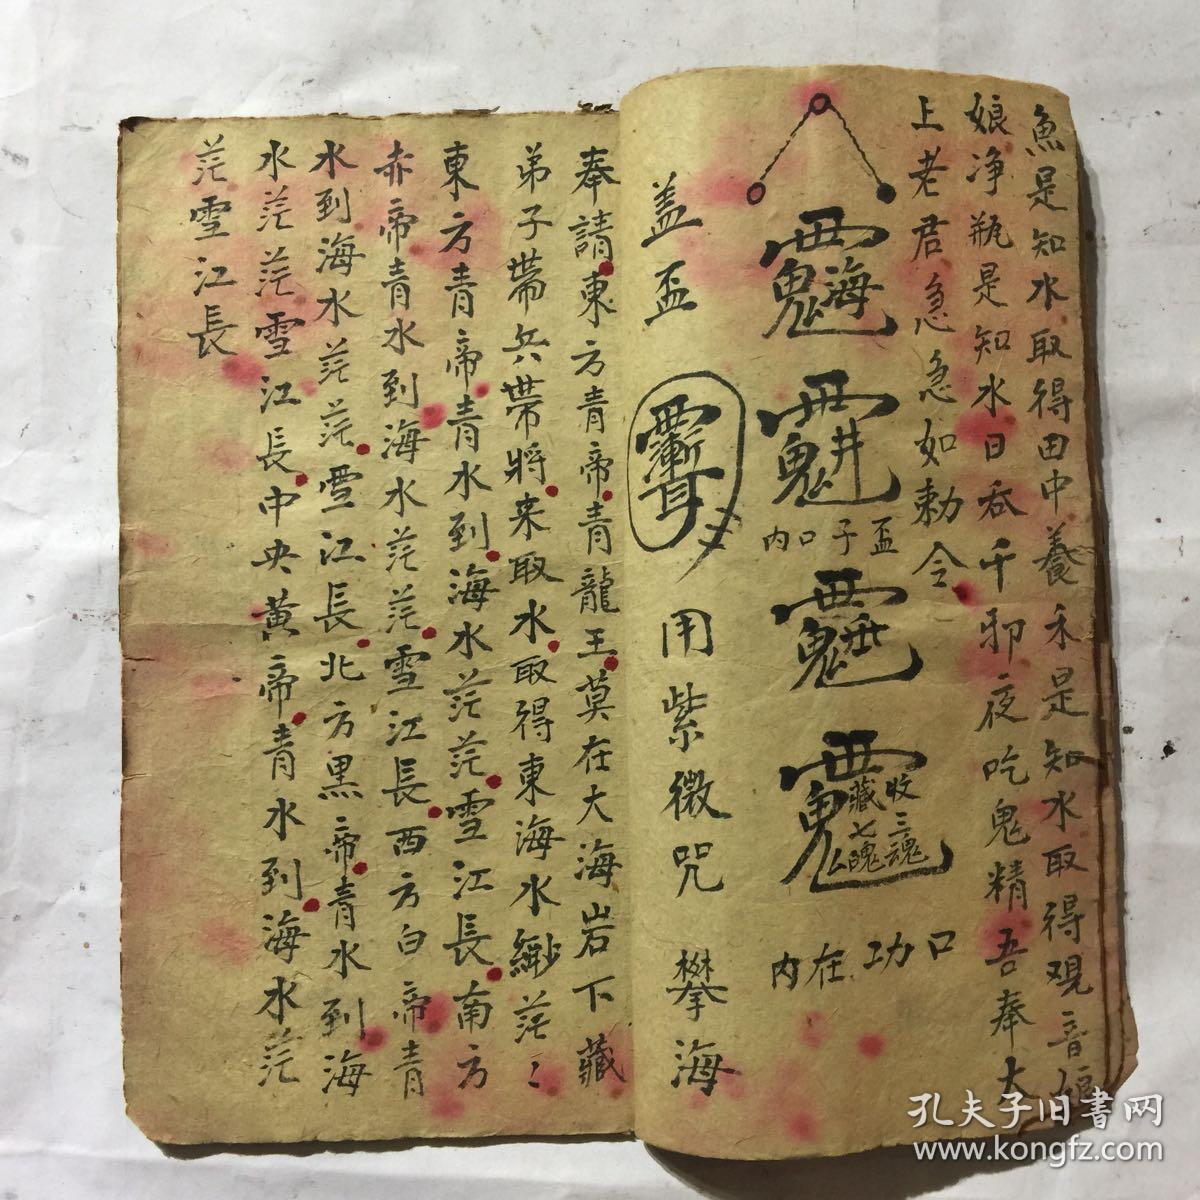 魚是知水取得田中養禾是知水取得觀音娘
娘净瓶是知水日吞千邪夜吃鬼精吾奉大
上老君急急如勅令
海
井
内口子盃
收三魂
藏七魄
内在功口
盖盃
用紫微咒 攀海
奉請東方青帝青龍王莫在大海岩下藏
弟子帶兵帶將来取水取得東海水緲茫〻
東方青帝青水到海水茫茫雪江長南方
赤帝青水到海水茫茫雪江長西方白帝青
水到海水茫茫雪江長北方黑帝青水到海
水茫茫雪江長中央黄帝青水到海水茫
茫雪江長
孔夫子旧書网
www.kongfz.com